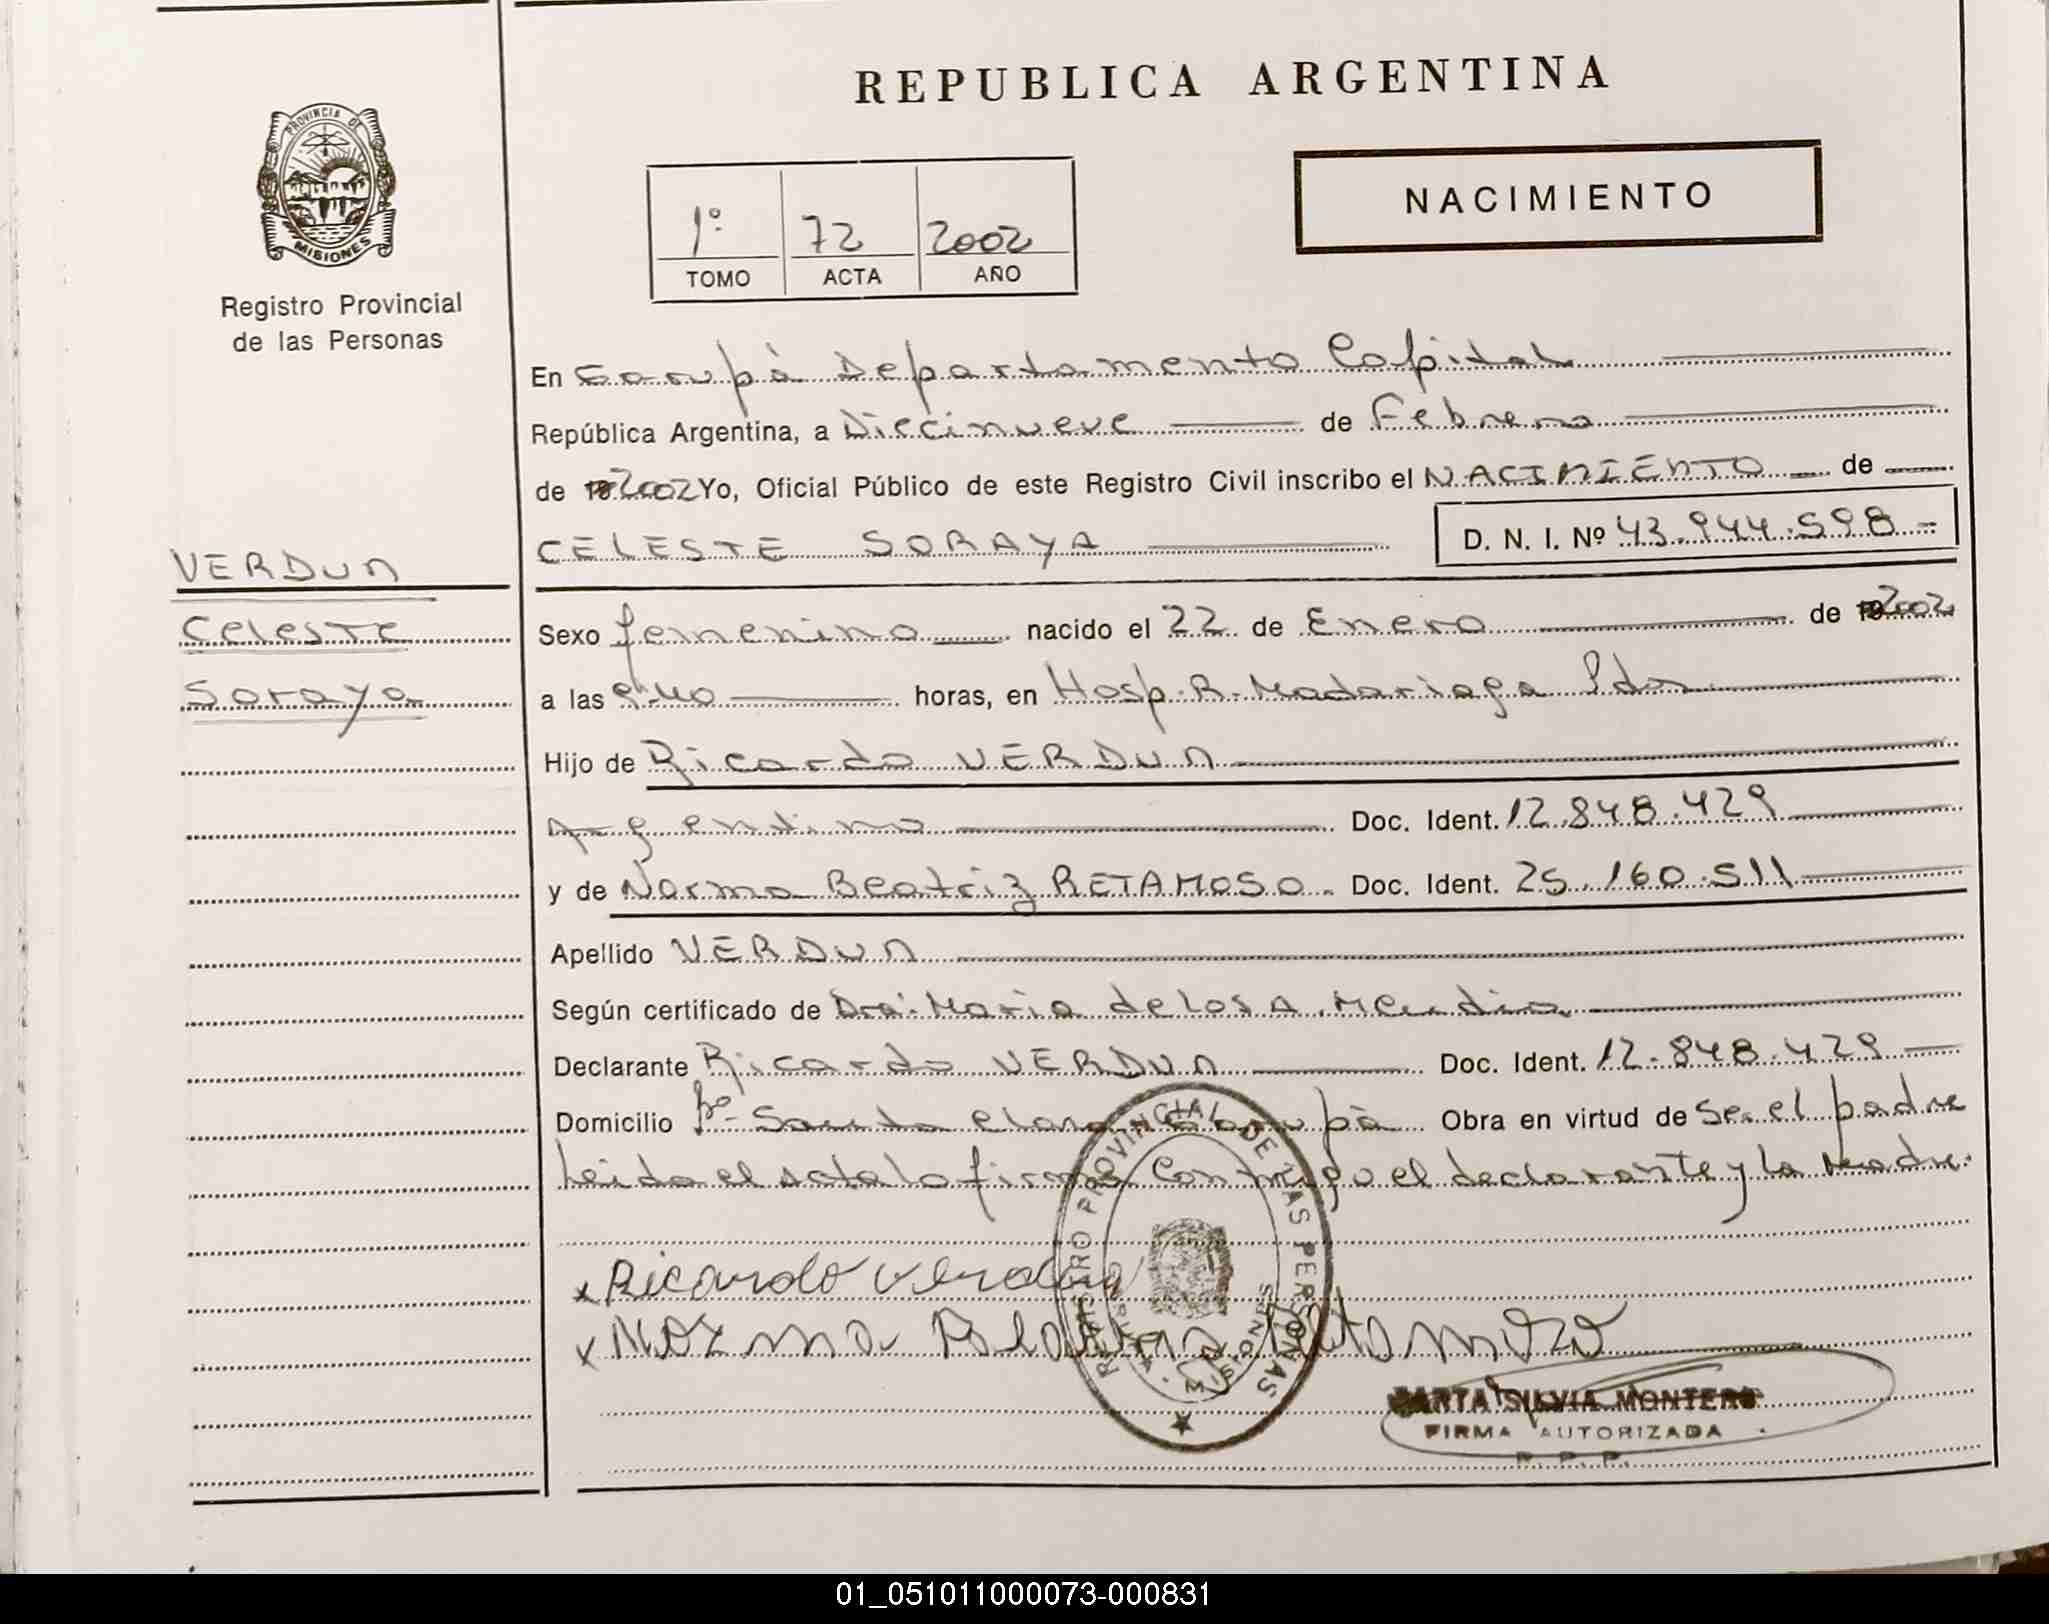 REPUBLICA ARGENTINA
PROVINCIA DE
MISIONES
Registro Provincial
de las Personas
NACIMIENTO
1º 72 2002
TOMO ACTA AÑO
En Garupà Departamento Capital
República Argentina, a Diecinueve de Febrero
de 2002 Yo, Oficial Público de este Registro Civil inscribo el NACIMIENTO de
CELESTE SORAYA D. N. I. Nº 43.944.598
VERDUN
Celeste
Soraya
Sexo femenino nacido el 22 de Enero de 2002
a las horas, en Hosp. R. Madariaga Pdas
Hijo de Ricardo VERDUN
Argentino Doc. Ident. 12.848.429
y de Norma Beatriz RETAMOSO Doc. Ident. 25.160.511
Apellido VERDUN
Según certificado de Dra. Maria de los A.
Declarante Ricardo VERDUN Doc. Ident. 12.848.429
Domicilio Bº Santa Clara Garupà Obra en virtud de Ser el padre
Leida el acta la firma conmigo el declarante y la Madre.
x Ricardo Verdun
x Norma Beatriz Retamozo
REGISTRO PROVINCIAL DE LAS PERSONAS
MISIONES
MARTA SILVIA MONTERO
FIRMA AUTORIZADA
R. P. P.
01_051011000073-000831